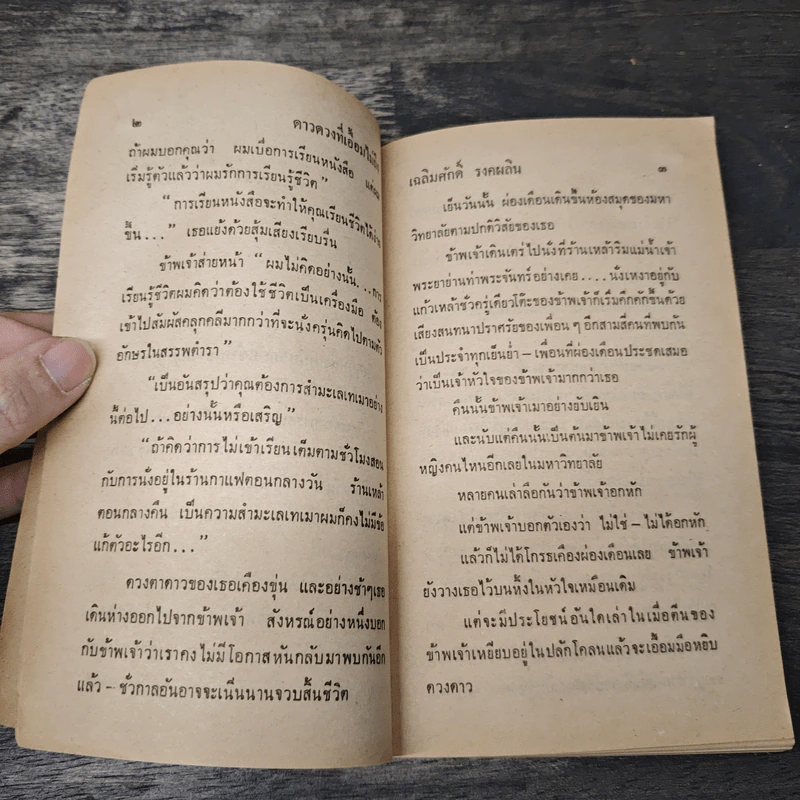 ๒
ดาวดวงที่เอื้อมไม่ถึง
ถ้าผมบอกคุณว่า ผมเบื่อการเรียนหนังสือ
เริ่มรู้ตัวแล้วว่าผมรักการเรียนรู้ชีวิต”
“การเรียนหนังสือจะทำให้คุณเรียนชีวิตได้ง่าย
ขึ้น...” เธอแย้งด้วยสุ้มเสียงเรียบรื่น
ข้าพเจ้าส่ายหน้า “ผมไม่คิดอย่างนั้น...การ
เรียนรู้ชีวิตผมคิดว่าต้องใช้ชีวิตเป็นเครื่องมือ ต้อง
เข้าไปสัมผัสคลุกคลีมากกว่าที่จะนั่งครุ่นคิดไปตามตัว
อักษรในสรรพตำรา”
“เป็นอันสรุปว่าคุณต้องการสำมะเลเทเมาอย่าง
นี้ต่อไป...อย่างนั้นหรือเสริญ”
“ถ้าคิดว่าการไม่เข้าเรียนเต็มตามชั่วโมงสอน
กับการนั่งอยู่ในร้านกาแฟตอนกลางวัน ร้านเหล้า
ตอนกลางคืน เป็นความสำมะเลเทเมาผมก็คงไม่มีข้อ
แก้ตัวอะไรอีก...”
ดวงตาดาวของเธอเคืองขุ่น และอย่างช้าๆเธอ
เดินห่างออกไปจากข้าพเจ้า สังหรณ์อย่างหนึ่งบอก
กับข้าพเจ้าว่าเราคงไม่มีโอกาสหันกลับมาพบกันอีก
แล้ว – ชั่วกาลอันอาจจะเนิ่นนานจวบสิ้นชีวิต
เฉลิมศักดิ์ รงคผลิน
๓
เย็นวันนั้น ผ่องเดือนเดินขึ้นห้องสมุดของมหา
วิทยาลัยตามปกติวิสัยของเธอ
ข้าพเจ้าเดินเตร่ไปนั่งที่ร้านเหล้าริมแม่น้ำเจ้า
พระยาย่านท่าพระจันทร์อย่างเคย....นั่งเหงาอยู่กับ
แก้วเหล้าชั่วครู่เดียวโต๊ะของข้าพเจ้าก็เริ่มคึกคักขึ้นด้วย
เสียงสนทนาปราศรัยของเพื่อน ๆ อีกสามสี่คนที่พบกัน
เป็นประจำทุกเย็นย่ำ – เพื่อนที่ผ่องเดือนประชดเสมอ
ว่าเป็นเจ้าหัวใจของข้าพเจ้ามากกว่าเธอ
คืนนั้นข้าพเจ้าเมาอย่างยับเยิน
และนับแต่คืนนั้นเป็นต้นมาข้าพเจ้าไม่เคยรักผู้
หญิงคนไหนอีกเลยในมหาวิทยาลัย
หลายคนเล่าลือกันว่าข้าพเจ้าอกหัก
แต่ข้าพเจ้าบอกตัวเองว่า ไม่ใช่ – ไม่ได้อกหัก
แล้วก็ไม่ได้โกรธเคืองผ่องเดือนเลย ข้าพเจ้า
ยังวางเธอไว้บนหิ้งในหัวใจเหมือนเดิม
แต่จะมีประโยชน์อันใดเล่าในเมื่อตีนของ
ข้าพเจ้าเหยียบอยู่ในปลักโคลนแล้วจะเอื้อมมือหยิบ
ดวงดาว